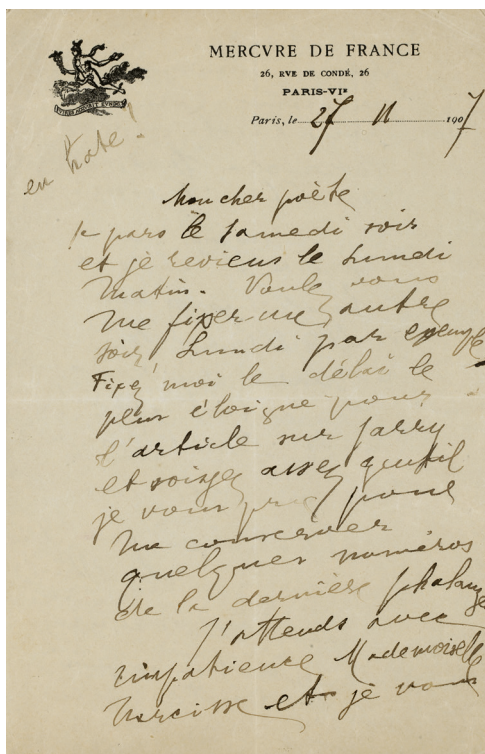 MERCVRE DE FRANCE
26, RVE DE CONDÉ, 26
PARIS-VIe
Paris, le 27 11 1907
en hâte!
Mon cher poète
Je pars le samedi soir
et je reviens le Lundi
Matin. Voulez vous
me fixer un autre
soir Lundi par exemple
Fixez moi le délai le
plus éloigné pour
l'article sur Jarry
et soyez assez gentil
je vous prie pour
me conserver
quelques numéros
de la dernière phalange
J'attends avec
impatience Mademoiselle
Narcisse et je vous